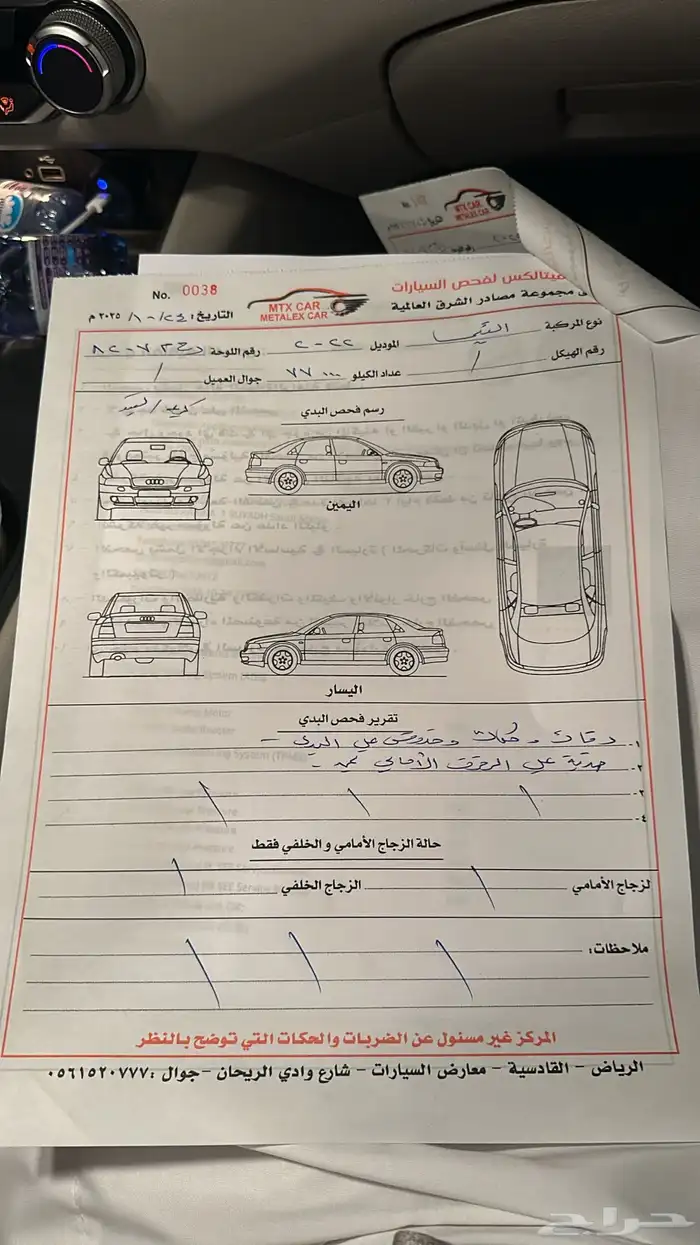 ميتالكس لفحص السيارات
مجموعة مصادر الشرق العالمية
MTX CAR
METALEX CAR
No. 0038
التاريخ: ٢٤ / ١٠ / ٢٠٢٥ م
نوع المركبة التيما الموديل ٢٠٢٢ رقم اللوحة
رقم الهيكل / عداد الكيلو ٧٧٠٠٠ جوال العميل /
رسم فحص البدي
اليمين
اليسار
تقرير فحص البدي
١- دقات و حكات وخدوش على البدي -
٢- على الرفرف الأمامي
٣-
٤-
حالة الزجاج الأمامي و الخلفي فقط
لزجاج الأمامي / الزجاج الخلفي /
ملاحظات:
المركز غير مسئول عن الضربات والحكات التي توضح بالنظر
الرياض - القادسية - معارض السيارات - شارع وادي الريحان - جوال: ٠٥٦١٥٢٠٧٧٧
MTX CAR
METALEX CAR
حراج